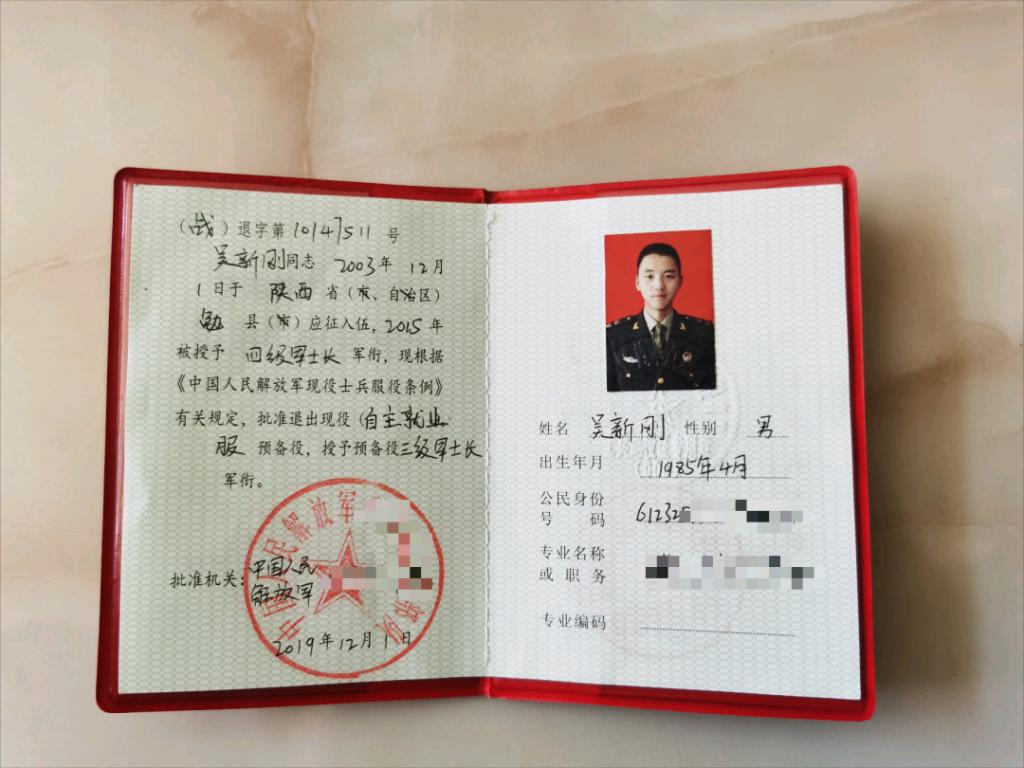 （战）退字第10147511号
吴新刚同志 2003年 12月
1日于 陕西 省（市、自治区）
勉 县（市）应征入伍，2015年
被授予 四级军士长 军衔，现根据
《中国人民解放军现役士兵服役条例》
有关规定，批准退出现役（自主就业
服 预备役，授予预备役三级军士长
军衔。
批准机关：中国人民
解放军
2019年12月1日
中国人民解放军
部队
姓名 吴新刚 性别 男
出生年月 1985年4月
公民身份
号码 61232
专业名称
或职务
专业编码